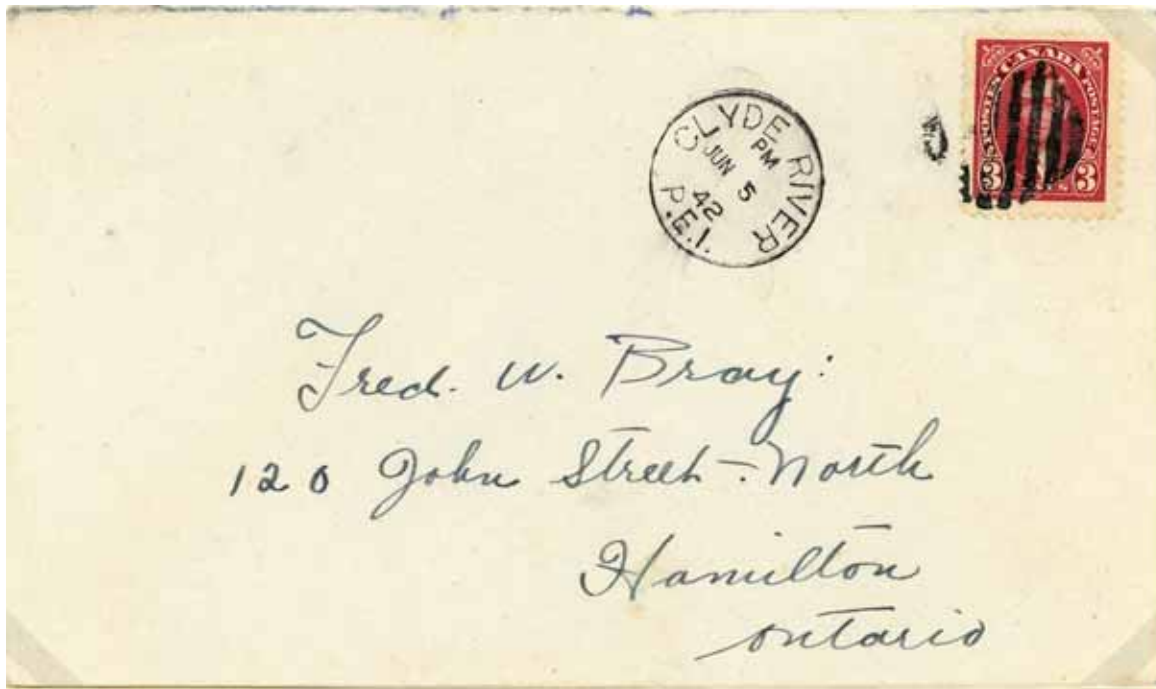 CLYDE RIVER
PM
JUN 5
42
P.E.I.
POSTES CANADA POSTAGE
3 3
Fred. W. Bray:
120 John Street - North
Hamilton
Ontario